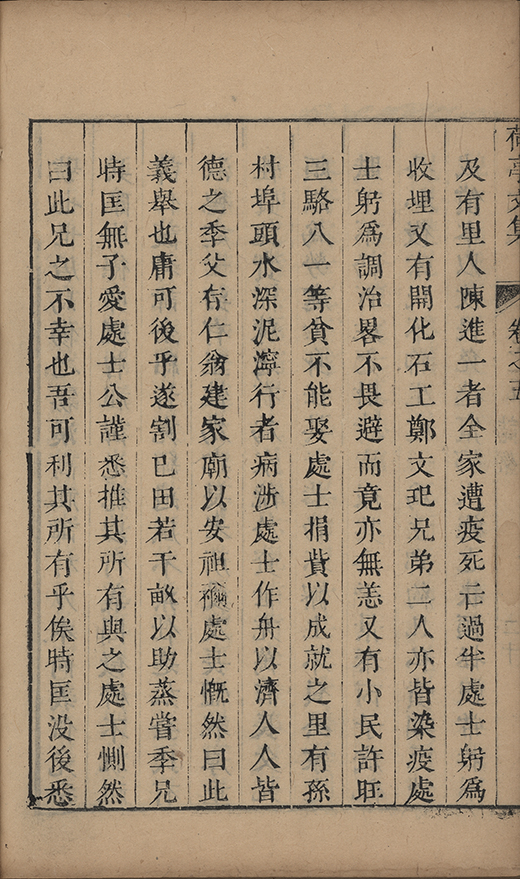 荷亭文集 卷之五
及有里人陳進一者全家遭疫死亡過半處士躬爲
收埋又有開化石工鄭文玘兄弟二人亦皆染疫處
士躬爲調治畧不畏避而竟亦無恙又有小民許旺
三駱八一等貧不能娶處士捐貲以成就之里有孫
村埠頭水深泥濘行者病涉處士作舟以濟人人皆
德之季父存仁翁建家廟以安祖禰處士慨然曰此
義舉也庸可後乎遂割已田若干畝以助蒸嘗季兄
時匡無子愛處士公謹悉推其所有與之處士惻然
曰此兄之不幸也吾可利其所有乎俟時匡没後悉